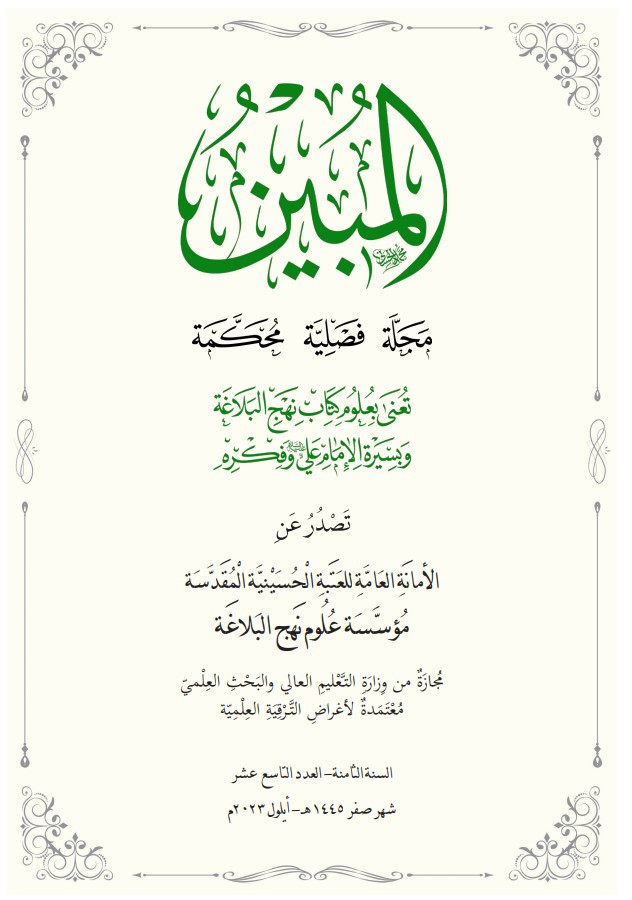 المُبِين
مَجَلَّة فَصْلِيَّة مُحَكَّمَة
تُعْنَى بِعُلُومِ كِتَابِ نَهْجِ البَلَاغَةِ
وَبِسِيْرَةِ الإِمَامِ عَلِيٍّ وَفِكْرِهِ
تَصْدُرُ عَنِ
الأمانَةِ العَامَّةِ للعَتَبَةِ الْحُسَيْنِيَّةِ الْمُقَدَّسَة
مُؤسَّسَة عُلُوم نَهج البَلاغَة
مُجازَةٌ من وِزارَةِ التَّعْليمِ العالي والبَحْثِ العِلْميّ
مُعْتَمَدةٌ لأغراضِ التَّرْقِيَةِ العِلْمِيّة
السنة الثامنة – العدد التاسع عشر
شهر صفر ١٤٤٥هـ – أيلول ٢٠٢٣م